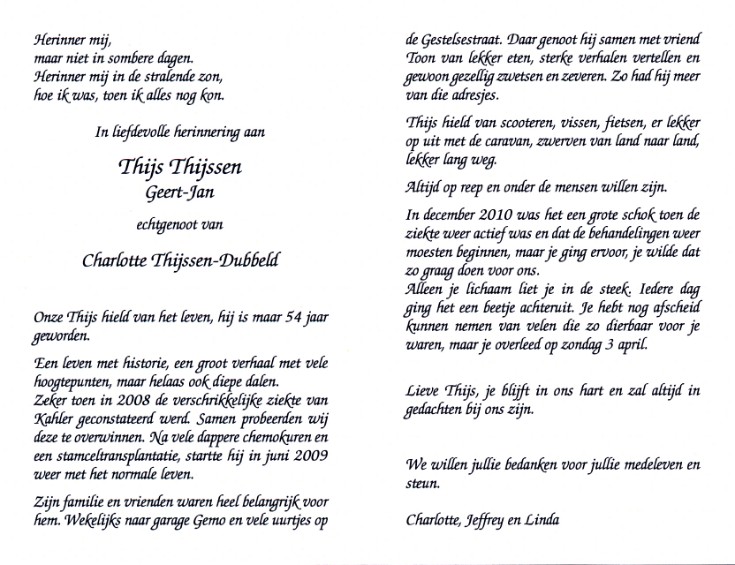 Herinner mij,
maar niet in sombere dagen.
Herinner mij in de stralende zon,
hoe ik was, toen ik alles nog kon.
In liefdevolle herinnering aan
Thijs Thijssen
Geert-Jan
echtgenoot van
Charlotte Thijssen-Dubbeld
Onze Thijs hield van het leven, hij is maar 54 jaar
geworden.
Een leven met historie, een groot verhaal met vele
hoogtepunten, maar helaas ook diepe dalen.
Zeker toen in 2008 de verschrikkelijke ziekte van
Kahler geconstateerd werd. Samen probeerden wij
deze te overwinnen. Na vele dappere chemokuren en
een stamceltransplantatie, startte hij in juni 2009
weer met het normale leven.
Zijn familie en vrienden waren heel belangrijk voor
hem. Wekelijks naar garage Gemo en vele uurtjes op
de Gestelsestraat. Daar genoot hij samen met vriend
Toon van lekker eten, sterke verhalen vertellen en
gewoon gezellig zwetsen en zeveren. Zo had hij meer
van die adresjes.
Thijs hield van scooteren, vissen, fietsen, er lekker
op uit met de caravan, zwerven van land naar land,
lekker lang weg.
Altijd op reep en onder de mensen willen zijn.
In december 2010 was het een grote schok toen de
ziekte weer actief was en dat de behandelingen weer
moesten beginnen, maar je ging ervoor, je wilde dat
zo graag doen voor ons.
Alleen je lichaam liet je in de steek. Iedere dag
ging het een beetje achteruit. Je hebt nog afscheid
kunnen nemen van velen die zo dierbaar voor je
waren, maar je overleed op zondag 3 april.
Lieve Thijs, je blijft in ons hart en zal altijd in
gedachten bij ons zijn.
We willen jullie bedanken voor jullie medeleven en
steun.
Charlotte, Jeffrey en Linda